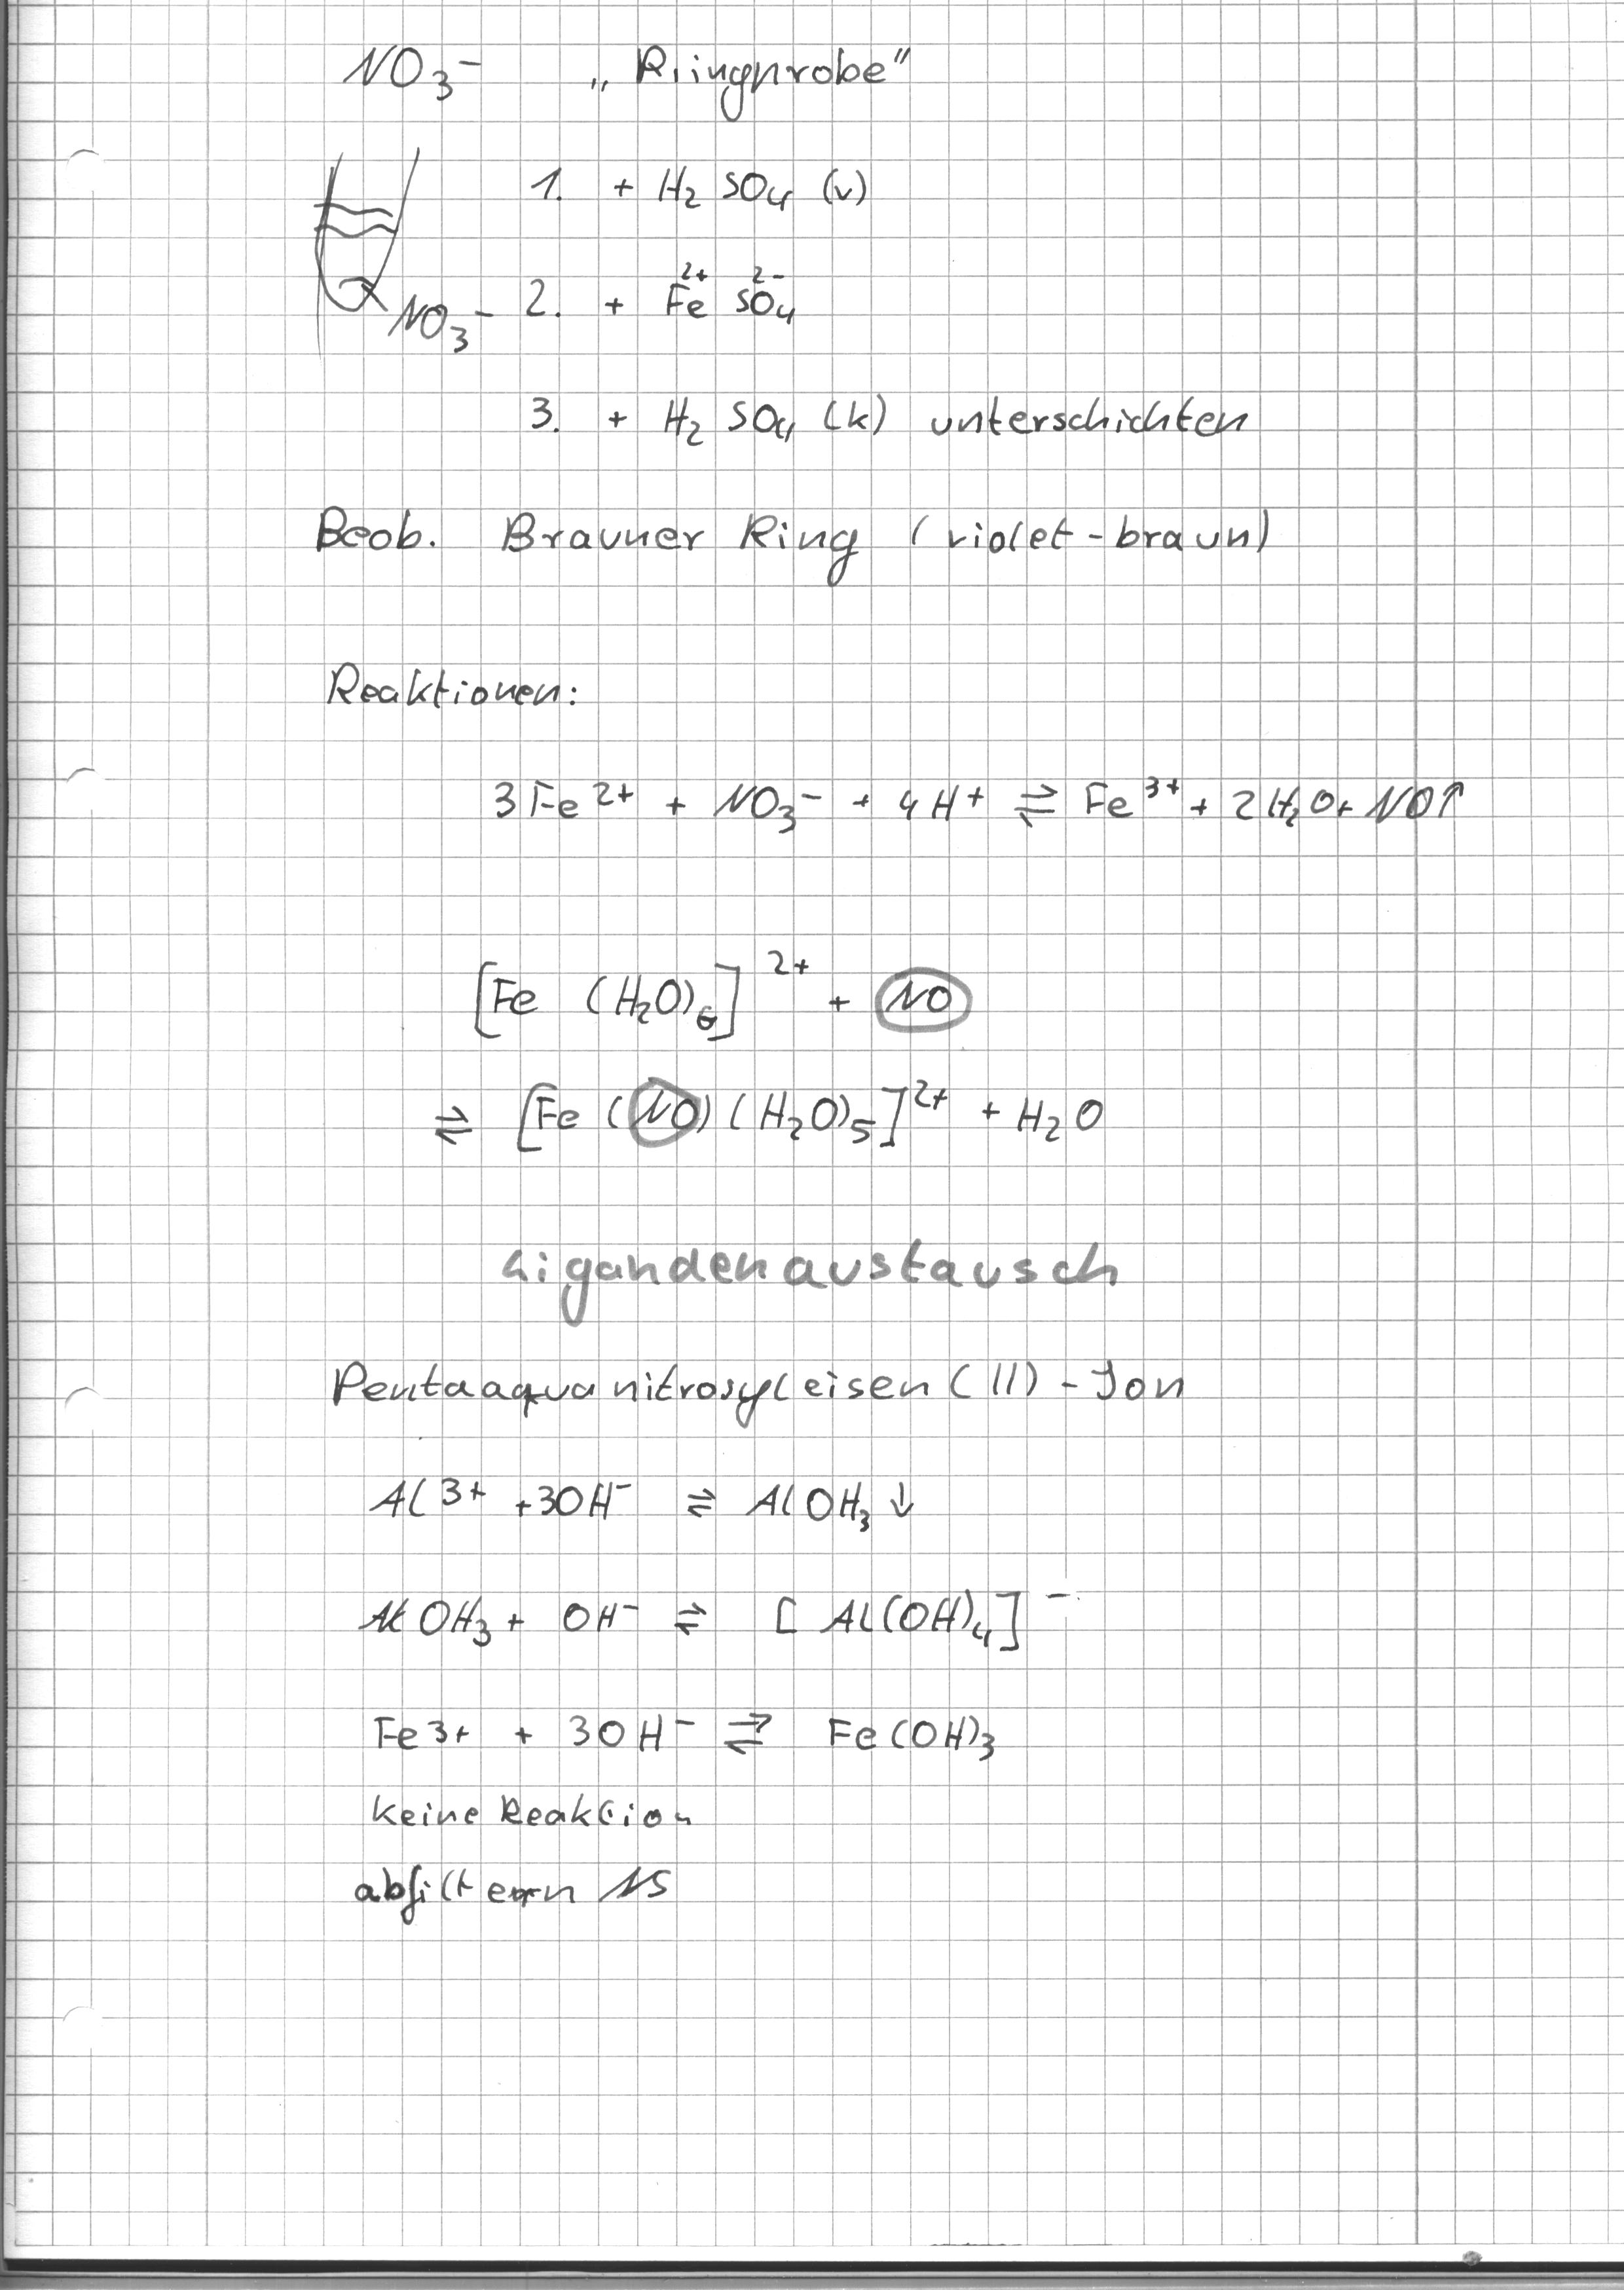 NO₃⁻ „Ringprobe"
1. + H₂SO₄ (v)
2. + Fe²⁺ SO₄²⁻
NO₃⁻
3. + H₂SO₄ (k) unterschichten
Beob. Brauner Ring (violet-braun)
Reaktionen:
3Fe²⁺ + NO₃⁻ + 4H⁺ ⇌ Fe³⁺ + 2H₂O + NO↑
[Fe (H₂O)₆]²⁺ + NO
⇌ [Fe (NO) (H₂O)₅]²⁺ + H₂O
Ligandenaustausch
Pentaaquanitrosyleisen(II)-Ion
Al³⁺ + 3OH⁻ ⇌ AlOH₃ ↓
AlOH₃ + OH⁻ ⇌ [Al(OH)₄]⁻
Fe³⁺ + 3OH⁻ ⇌ Fe(OH)₃
keine Reaktion
abfiltern NS